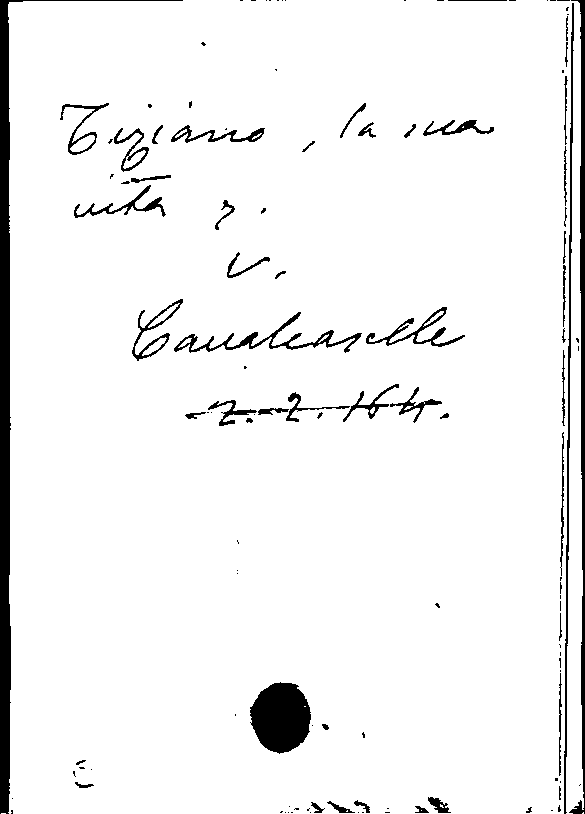 Tiziano, la sua
vita z.
v.
Cavalcaselle
z. z. 164.